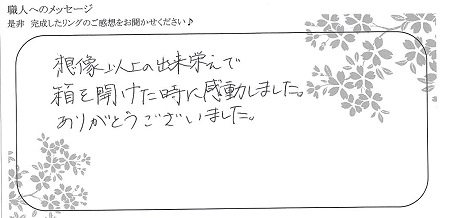 職人へのメッセージ
是非 完成したリングのご感想をお聞かせください♪
想像以上の出来栄えで
箱を開けた時に感動しました。
ありがとうございました。